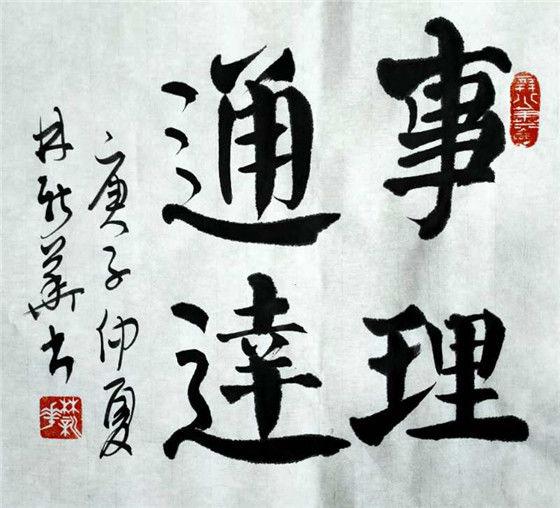 事理
通達
庚子仲夏
林新華书